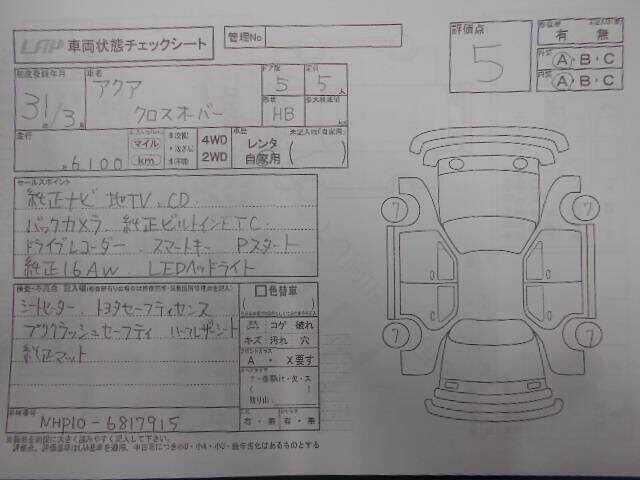 車両状態チェックシート
管理No
評価点
5
有 無
A・B・C
A・B・C
初度登録年月
31年/3月
車名
アクア
クロスオーバー
ドア数
5
定員
5人
形状
HB
走行
6100
マイル
km
4WD
2WD
車歴
レンタ
自家用
未記入は「自家用」
セールスポイント
純正ナビ 地TV. CD
バックカメラ. 純正ビルトインETC
ドライブレコーダー. スマートキー Pスタート
純正16AW. LEDヘッドライト
シートヒーター. トヨタセーフティセンス
プリクラッシュセーフティ ハーフレザーシート
純正マット
色替車
コゲ 破れ
キズ 汚れ 穴
フロントガラス
A ・ X要す
残り山
有・無 有・無
車体番号
NHP10-6817915
7
7
7
7